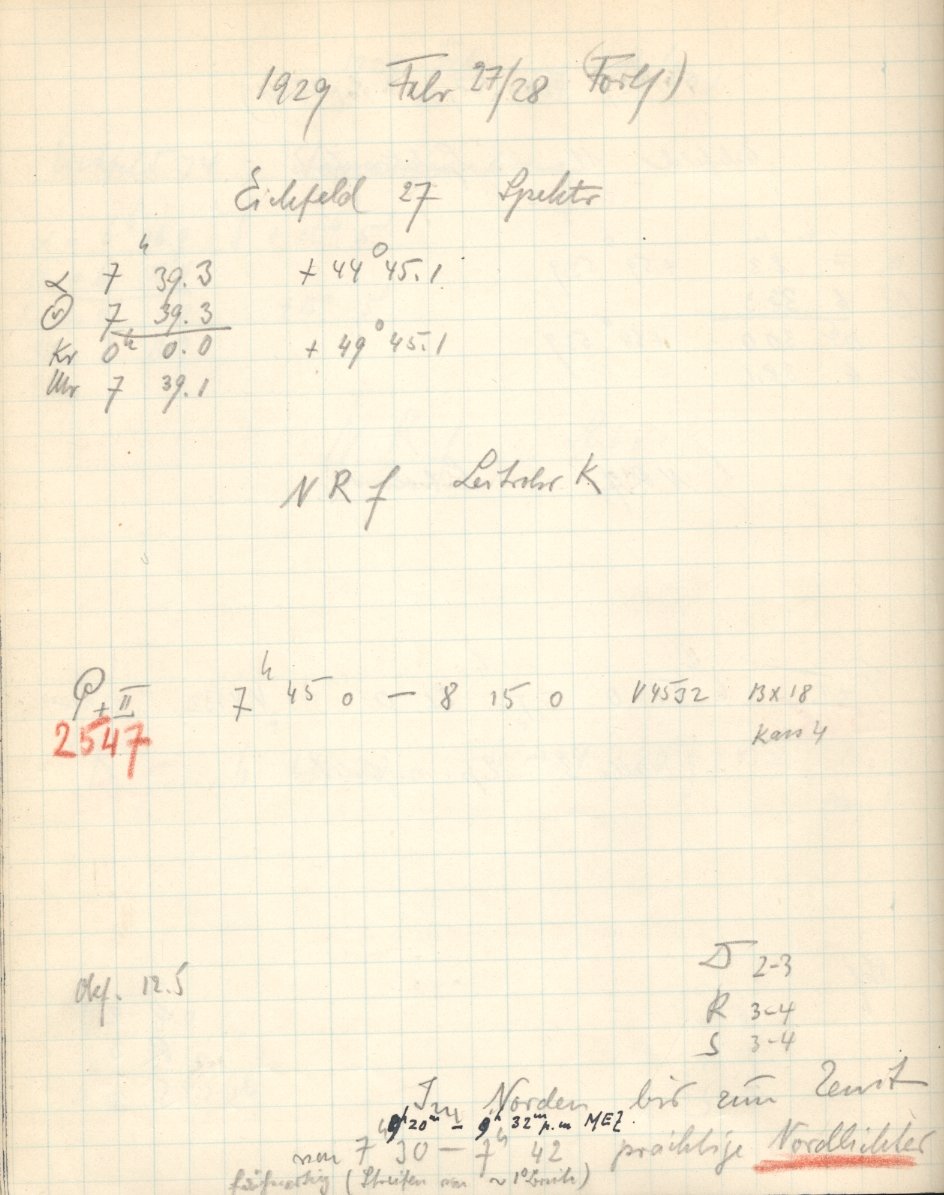 1929 Febr 27/28 (Forts)
Eichfeld 27 Spektr
α 7 h 39.3 + 44° 45.1
7 39.3
Kr 0 h 0.0 + 49° 45.1
Uhr 7 39.1
N R f Leitrohr K
P + II 7 h 45 0 — 8 15 0 V4532 BX18
2547 Kass 4
Okf. 12.5
D 2-3
R 3-4
S 3-4
Im Norden bis zum Zenit
9h 20m – 9h 32m p.m MEZ.
von 7 h 30 — 7 h 42 prächtige Nordlichter
(Streifen von ~1° Breite)